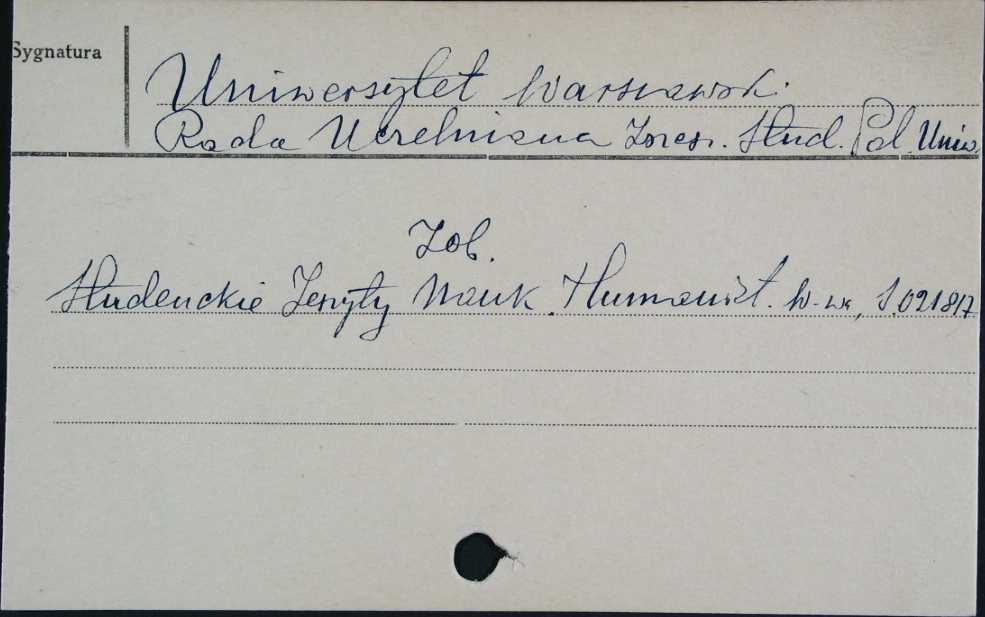 Sygnatura
Uniwersytet Warszawski.
Rada Uczelniana Zrzesz. Stud. Pol. Uniw.
Zob.
Studenckie Zeszyty Nauk. Humanist. W-wa, S.02187